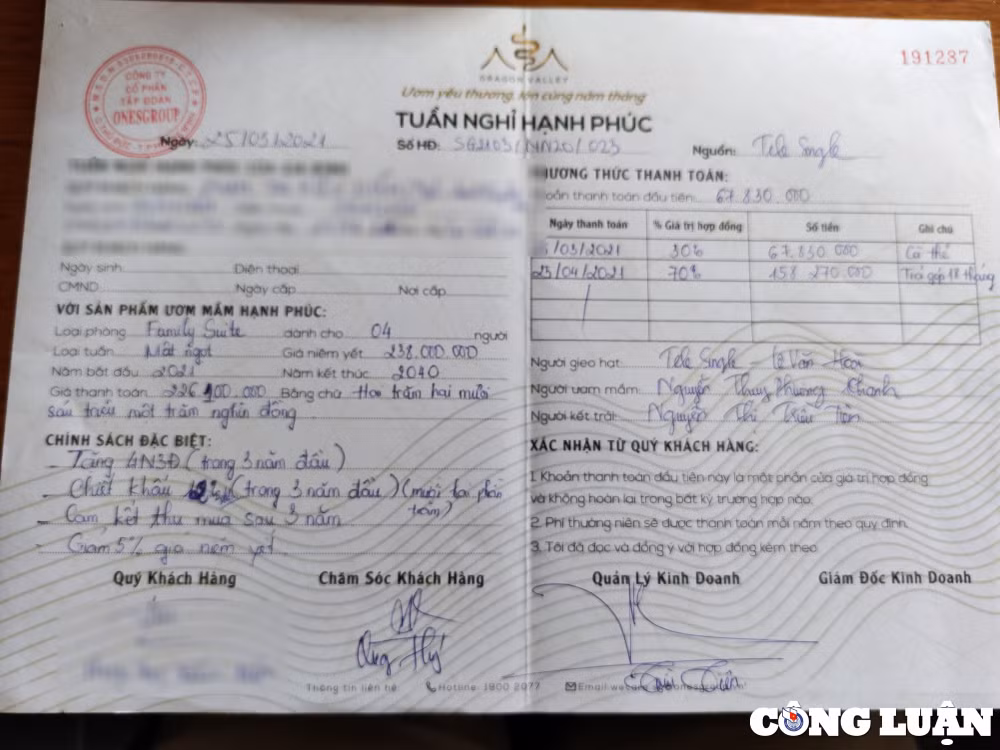 CÔNG TY
CỔ PHẦN
TẬP ĐOÀN
ONESGROUP
DRAGON VALLEY
191287
Ươm yêu thương, lớn cùng năm tháng
TUẦN NGHỈ HẠNH PHÚC
Ngày: 25/03/2021
Số HĐ: SG2103/NN20/023
Nguồn: Tele Single
Ngày sinh Điện thoại
CMND Ngày cấp Nơi cấp
VỚI SẢN PHẨM ƯƠM MẦM HẠNH PHÚC:
Loại phòng Family Suite dành cho 04 người
Loại tuần Mật ngọt Giá niêm yết 238.000.000
Năm bắt đầu 2021 Năm kết thúc 2040
Giá thanh toán 226.100.000 Bằng chữ Hai trăm hai mươi
sáu triệu một trăm nghìn đồng
CHÍNH SÁCH ĐẶC BIỆT:
- Tặng 4N3Đ (trong 3 năm đầu)
- Chiết khấu (trong 3 năm đầu) (mười hai phần
trăm)
- Cam kết thu mua sau 3 năm
- Giảm 5% giá niêm yết
Quý Khách Hàng Chăm Sóc Khách Hàng
HƯƠNG THỨC THANH TOÁN:
oản thanh toán đầu tiên: 67.830.000
Ngày thanh toán % Giá trị hợp đồng Số tiền Ghi chú
/03/2021 30% 67.830.000 Cà thẻ
25/04/2021 70% 158.270.000 Trả góp 18 tháng
Người gieo hạt: Tele Single - Lê Văn Hoa
Người ươm mầm: Nguyễn Thụy Phương Khanh
Người kết trái: Nguyễn Thị Triều Tiên
XÁC NHẬN TỪ QUÝ KHÁCH HÀNG:
1. Khoản thanh toán đầu tiên này là một phần của giá trị hợp đồng
và không hoàn lại trong bất kỳ trường hợp nào.
2. Phí thường niên sẽ được thanh toán mỗi năm theo quy định.
3. Tôi đã đọc và đồng ý với hợp đồng kèm theo.
Quản Lý Kinh Doanh Giám Đốc Kinh Doanh
Thông tin liên hệ Hotline: 1900 2077 Email:
CÔNG LUẬN